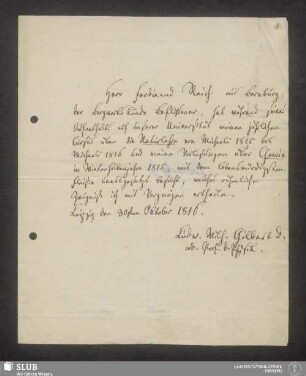 Herr Ferdinand Reich aus Bernburg,
der Bergwerkskunde Beflissener, hat während seines
Aufenthalts auf hiesiger Universität meinen jährlichen
Cursus über die Naturlehre von Michaeli 1815 bis
Michaeli 1816 und meine Vorlesungen über Chemie
im Winterhalbenjahre 1815 mit dem lobenswürdigsten
Fleiße unausgesetzt besucht, welches rühmliche
Zeugniß ich mit Vergnügen ertheile.
Leipzig den 30sten Oktober 1816.
Ludw. Wilh. Gilbert d.
ord. Prof. d. Physik.
SLUB
Wir führen Wissen.